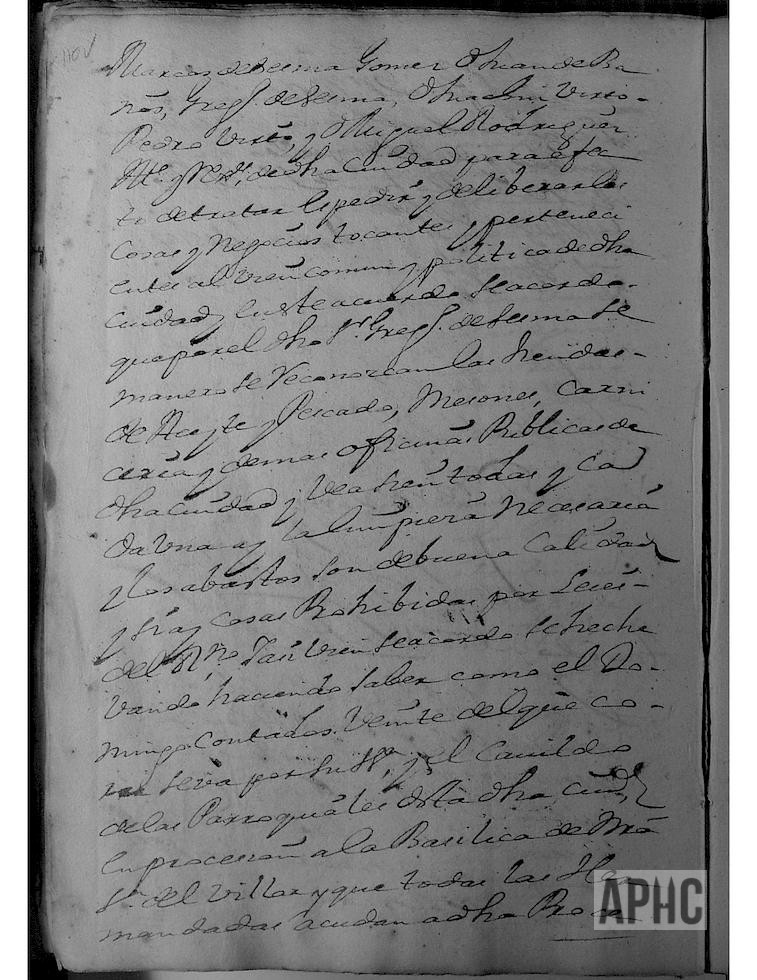 110V
Marcos de Sesma Gomez Dn Juan de Ba
ños, Greg.o de Sesma, Dn
Pedro Virto, y Dn Miguel Rodriguez
de dha Ciudad para efec
to de tratar y deliberar las
Cosas y Negocios tocantes y perteneci
entes al Vien comun y politica de dha
Ciudad, y Juste acuerdo Se acordo
que por el dho Sr. Greg.o de Sesma Se
manero Se Reconozcan las tiendas
de Aceyte y Pescado, Mesones, Carni
ceria y demas oficinas Publicas de
dha Ciudad y Vea si en todas y Ca
da Una ay la limpieza Necesaria
y los abastos son de buena Calidad
y si ay Cosas Prohibidas por Leies
del Rno Tan Vien Se acordo Se heche
Vando haciendo Saber como el Do
mingo Contados Veinte del que co
rre Seva por su Sa. y el Cavildo
de las Parroquiales desta dha Ciud.
en procesion a la Basilica de Nra
Sra. del Villar y que todas las Her
mandadas acudan a dha Proce
APHC